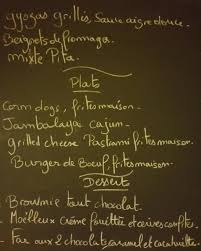 gyozas grillés, Sauce aigre douce.
Beignets de fromage.
mixte Pita.
Plats
Corn dogs, frites maison.
Jambalaya cajun.
grilled cheese Pastrami frites maison.
Burger de Boeuf, frites maison.
Desserts
Brownie tout chocolat.
Moëlleux crème fouettée et cerises confites.
Far aux 2 chocolats caramel et cacahuète.